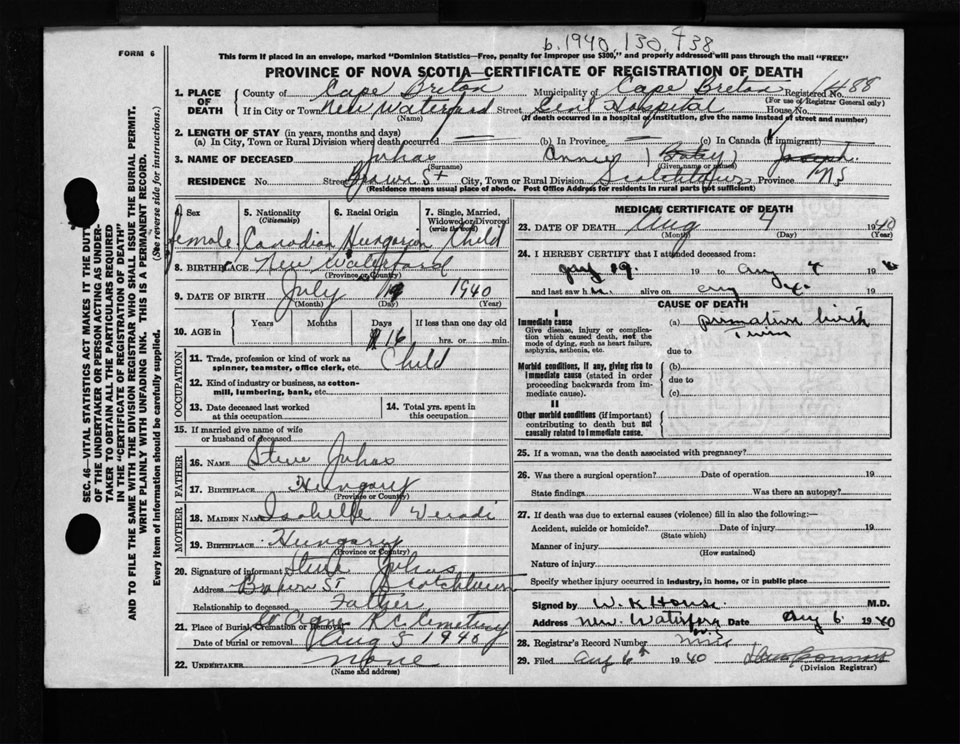 b. 1940. 130. 738
FORM 6
This form if placed in an envelope, marked "Dominion Statistics—Free, penalty for improper use $300," and properly addressed will pass through the mail "FREE"
PROVINCE OF NOVA SCOTIA—CERTIFICATE OF REGISTRATION OF DEATH
1. PLACE OF DEATH County of Cape Breton Municipality of Cape Breton Registered No. 1488
(For use of Registrar General only)
If in City or Town New Waterford Street Genl Hospital House No.
(Name) (If death occurred in a hospital or institution, give the name instead of street and number)
2. LENGTH OF STAY (in years, months and days)
(a) In City, Town or Rural Division where death occurred — (b) In Province — (c) In Canada (if immigrant)
3. NAME OF DECEASED Juhas Annie (Baby) Joseph
(Surname) (Given name or names)
RESIDENCE No. Street Brown St City, Town or Rural Division Scotchtown Province NS
(Residence means usual place of abode. Post Office Address for residents in rural parts not sufficient)
4. Sex 5. Nationality (Citizenship) 6. Racial Origin 7. Single, Married, Widowed or Divorced (write the word)
female Canadian Hungarian Child
8. BIRTHPLACE New Waterford
(Province or Country)
9. DATE OF BIRTH July 19 1940
(Month) (Day) (Year)
10. AGE in Years Months Days If less than one day old
16 hrs. or min.
OCCUPATION
11. Trade, profession or kind of work as spinner, teamster, office clerk, etc. Child
12. Kind of industry or business, as cotton-mill, lumbering, bank, etc.
13. Date deceased last worked at this occupation
14. Total yrs. spent in this occupation
15. If married give name of wife or husband of deceased
FATHER
16. NAME Steve Juhas
17. BIRTHPLACE Hungary
(Province or Country)
MOTHER
18. MAIDEN NAME Isabelle
19. BIRTHPLACE Hungary
(Province or Country)
20. Signature of informant Steve Juhas
Address Brown St Scotchtown
Relationship to deceased Father
21. Place of Burial, Cremation or Removal R C Cemetery
Date of burial or removal Aug 5 1940
22. UNDERTAKER None
(Name and address)
MEDICAL CERTIFICATE OF DEATH
23. DATE OF DEATH Aug 4 1940
(Month) (Day) (Year)
24. I HEREBY CERTIFY that I attended deceased from:
July 19 19 to Aug 4 19
and last saw h alive on Aug 4 19
CAUSE OF DEATH
I
Immediate cause
Give disease, injury or complication which caused death, not the mode of dying, such as heart failure, asphyxia, asthenia, etc.
(a) premature birth
Twin
due to
Morbid conditions, if any, giving rise to immediate cause (stated in order proceeding backwards from immediate cause).
(b)
due to
(c)
II
Other morbid conditions (if important) contributing to death but not causally related to immediate cause.
25. If a woman, was the death associated with pregnancy?
26. Was there a surgical operation? Date of operation 19
State findings Was there an autopsy?
27. If death was due to external causes (violence) fill in also the following:—
Accident, suicide or homicide? Date of injury 19
(State which)
Manner of injury
(How sustained)
Nature of injury
Specify whether injury occurred in industry, in home, or in public place
Signed by W. K House M.D.
Address New Waterford Date Aug 6 1940
28. Registrar's Record Number
29. Filed Aug 6 1940
(Division Registrar)
SEC. 46—VITAL STATISTICS ACT MAKES IT THE DUTY
OF THE UNDERTAKER OR PERSON ACTING AS UNDER-
TAKER TO OBTAIN ALL THE PARTICULARS REQUIRED
IN THE "CERTIFICATE OF REGISTRATION OF DEATH"
AND TO FILE THE SAME WITH THE DIVISION REGISTRAR WHO SHALL ISSUE THE BURIAL PERMIT.
WRITE PLAINLY WITH UNFADING INK. THIS IS A PERMANENT RECORD.
Every item of information should be carefully supplied. (See reverse side for instructions.)